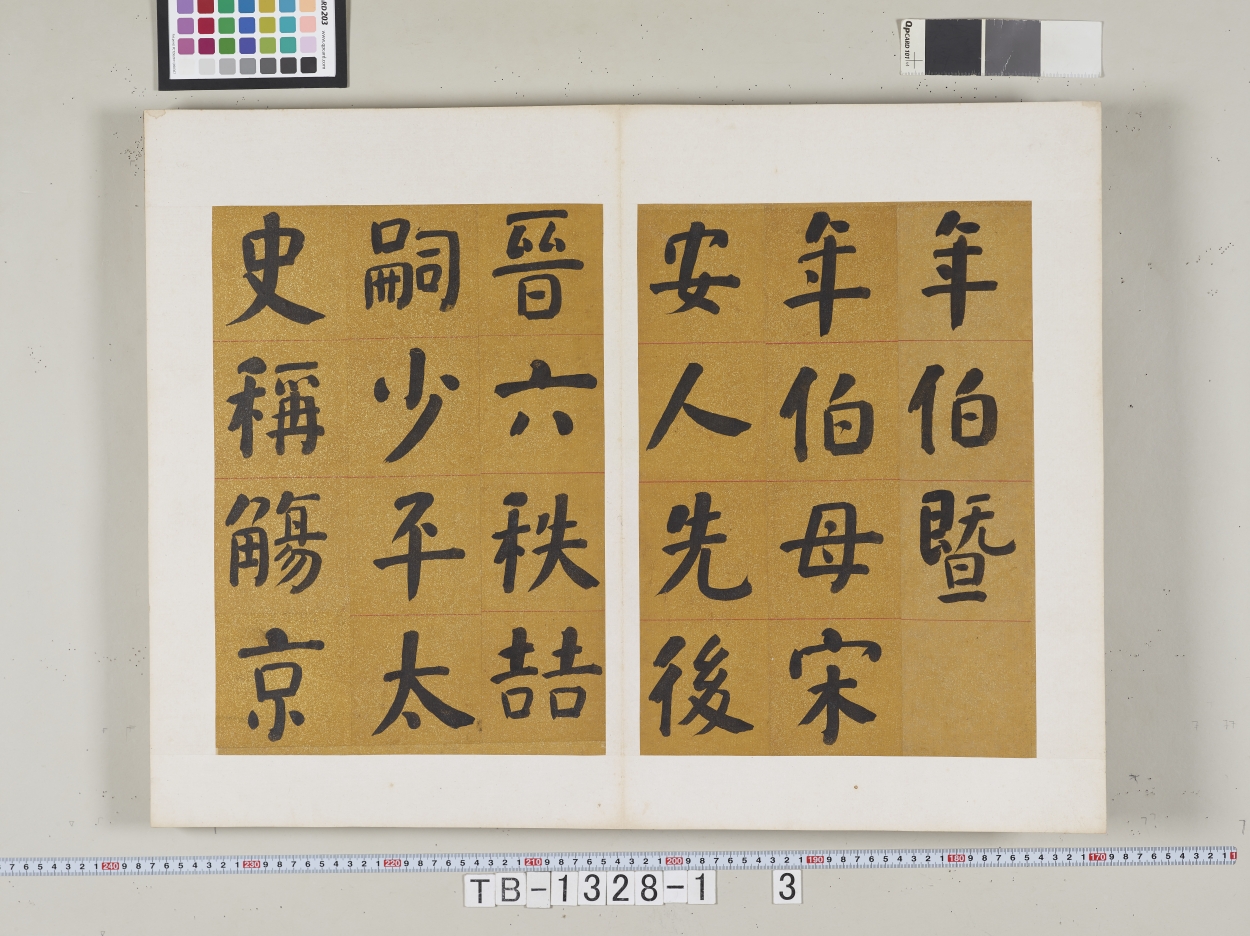 年伯暨
年伯母宋
安人先後
晉六秩喆
嗣少平太
史稱觴京
TB-1328-1 3